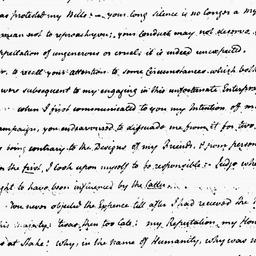 as protested my Bills: - your long silence is no longer a my
mean not to reproach you; your conduct may not deserve
appellation of ungenerous or cruel; it is indeed unexpected.
to recall your attention to some circumstances which both
were subsequent to my engaging in this unfortunate Enterprise
when I first communicated to you my Intention of
campaign, you endeavoured to dissuade me from it for two
being contrary to the Designs of my Friends, & your person
the first, I look upon myself to be responsible; - Judge whe
ght to have been influenced by the latter.
You never objected the Expence till after I had received the
his Majesty: 'twas then too late: my Reputation, my Hon
at Stake! Why, in the name of Humanity, why was